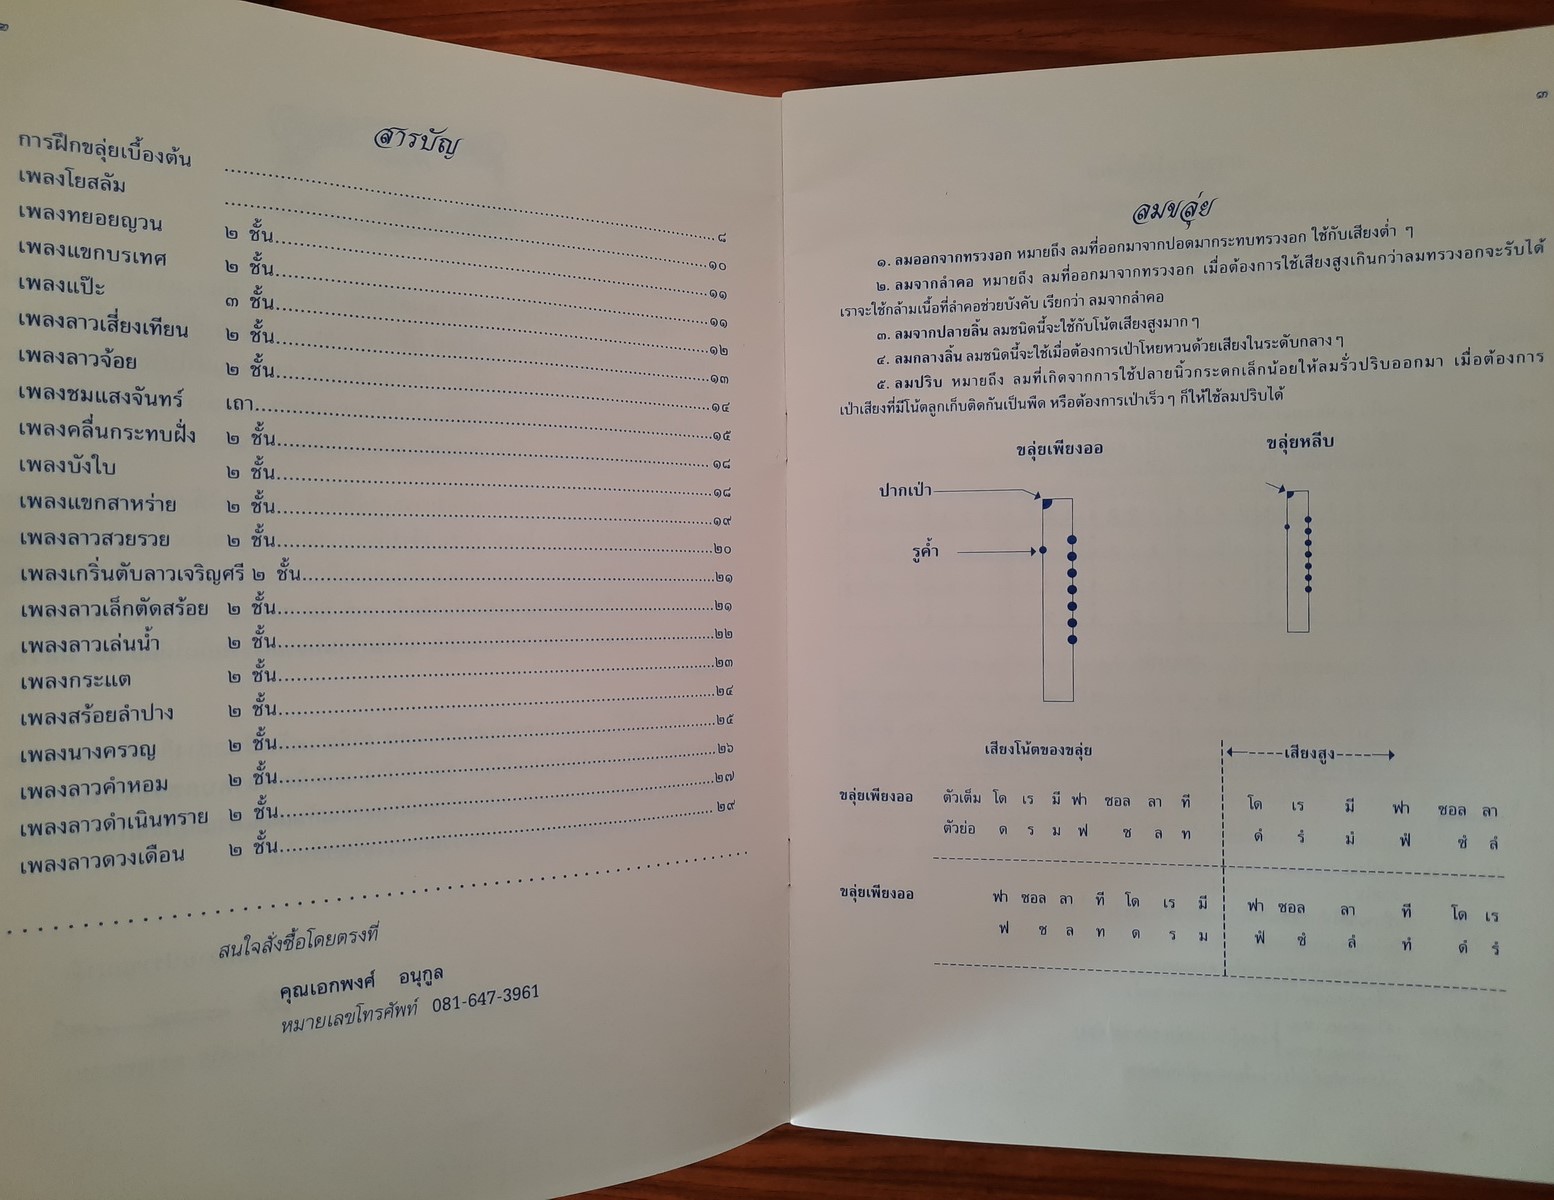 ๒
สารบัญ
การฝึกขลุ่ยเบื้องต้น ........................................ ๘
เพลงโยสลัม ........................................ ๑๐
เพลงทยอยญวน ๒ ชั้น........................................ ๑๑
เพลงแขกบรเทศ ๒ ชั้น........................................ ๑๑
เพลงแป๊ะ ๓ ชั้น........................................ ๑๒
เพลงลาวเสี่ยงเทียน ๒ ชั้น........................................ ๑๓
เพลงลาวจ้อย ๒ ชั้น........................................ ๑๔
เพลงชมแสงจันทร์ เถา........................................ ๑๕
เพลงคลื่นกระทบฝั่ง ๒ ชั้น........................................ ๑๘
เพลงบังใบ ๒ ชั้น........................................ ๑๘
เพลงแขกสาหร่าย ๒ ชั้น........................................ ๑๙
เพลงลาวสวยรวย ๒ ชั้น........................................ ๒๐
เพลงเกริ่นตับลาวเจริญศรี ๒ ชั้น........................................ ๒๑
เพลงลาวเล็กตัดสร้อย ๒ ชั้น........................................ ๒๑
เพลงลาวเล่นน้ำ ๒ ชั้น........................................ ๒๒
เพลงกระแต ๒ ชั้น........................................ ๒๓
เพลงสร้อยลำปาง ๒ ชั้น........................................ ๒๔
เพลงนางครวญ ๒ ชั้น........................................ ๒๕
เพลงลาวคำหอม ๒ ชั้น........................................ ๒๖
เพลงลาวดำเนินทราย ๒ ชั้น........................................ ๒๗
เพลงลาวดวงเดือน ๒ ชั้น........................................ ๒๙
สนใจสั่งซื้อโดยตรงที่
คุณเอกพงศ์ อนุกูล
หมายเลขโทรศัพท์ 081-647-3961
๓
ลมขลุ่ย
๑. ลมออกจากทรวงอก หมายถึง ลมที่ออกมาจากปอดมากระทบทรวงอก ใช้กับเสียงต่ำ ๆ
๒. ลมจากลำคอ หมายถึง ลมที่ออกมาจากทรวงอก เมื่อต้องการใช้เสียงสูงเกินกว่าลมทรวงอกจะรับได้
เราจะใช้กล้ามเนื้อที่ลำคอช่วยบังคับ เรียกว่า ลมจากลำคอ
๓. ลมจากปลายลิ้น ลมชนิดนี้จะใช้กับโน้ตเสียงสูงมาก ๆ
๔. ลมกลางลิ้น ลมชนิดนี้จะใช้เมื่อต้องการเป่าโหยหวนด้วยเสียงในระดับกลาง ๆ
๕. ลมปริบ หมายถึง ลมที่เกิดจากการใช้ปลายนิ้วกระดกเล็กน้อยให้ลมรั่วปริบออกมา เมื่อต้องการ
เป่าเสียงที่มีโน้ตลูกเก็บติดกันเป็นพืด หรือต้องการเป่าเร็ว ๆ ก็ให้ใช้ลมปริบได้
ขลุ่ยเพียงออ ขลุ่ยหลีบ
ปากเป่า
รูค้ำ
เสียงโน้ตของขลุ่ย เสียงสูง
ขลุ่ยเพียงออ ตัวเต็ม โด เร มี ฟา ซอล ลา ที โด เร มี ฟา ซอล ลา
ตัวย่อ ด ร ม ฟ ซ ล ท ดํ รํ มํ ฟํ ซํ ลํ
ขลุ่ยเพียงออ ฟา ซอล ลา ที โด เร มี ฟา ซอล ลา ที โด เร
ฟ ซ ล ท ด ร ม ฟํ ซํ ลํ ทํ ดํ รํ